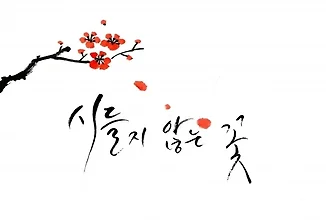 시들지 않는 꽃